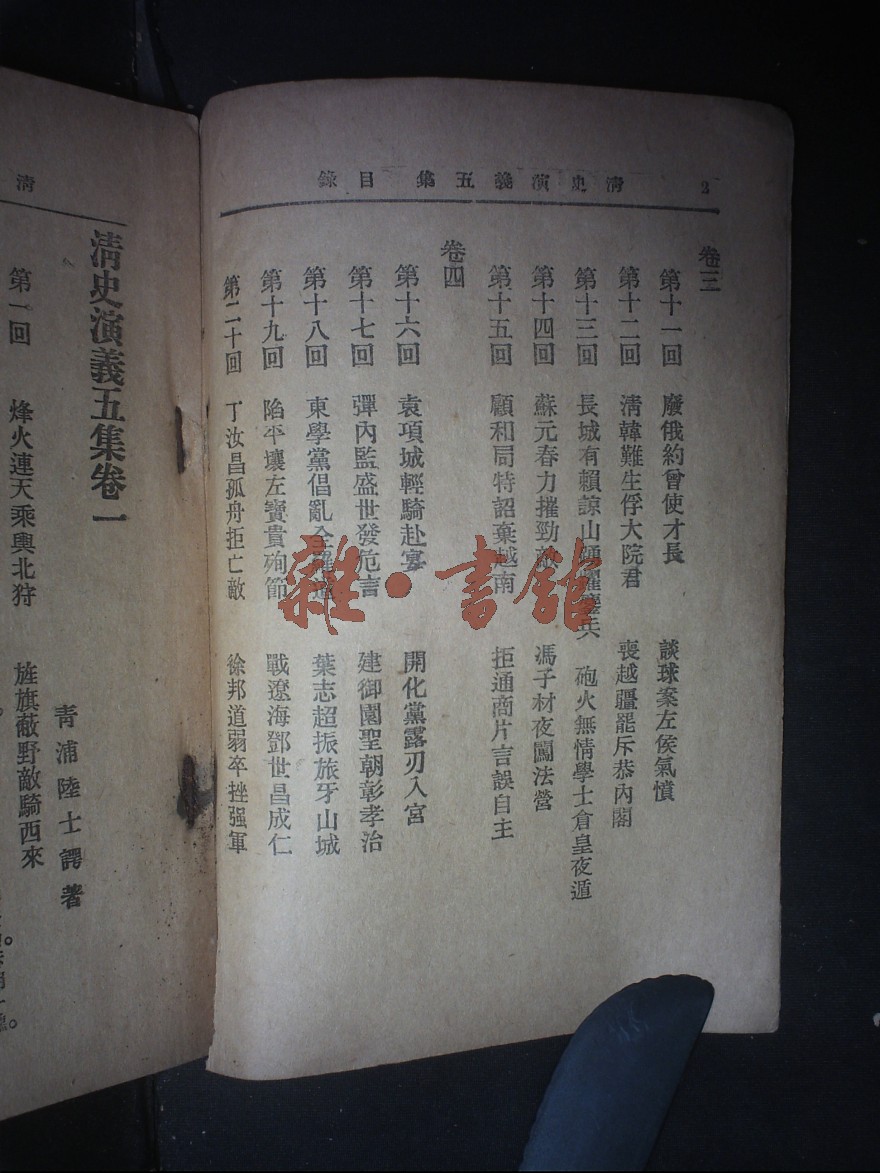 清史演義五集 目錄 2
卷三
第十一回 廢俄約曾使才長 談球案左侯氣憤
第十二回 清韓難生俘大院君 喪越疆罷斥恭內閣
第十三回 長城有賴諒山 兵 砲火無情學士倉皇夜遁
第十四回 蘇元春力摧勁敵 馮子材夜闖法營
第十五回 顧和局特詔棄越南 拒通商片言誤自主
卷四
第十六回 袁項城輕騎赴宴 開化黨露刃入宮
第十七回 彈內監盛世發危言 建御園聖朝彰孝治
第十八回 東學黨倡亂全羅道 葉志超振旅牙山城
第十九回 陷平壤左寶貴殉節 戰遼海鄧世昌成仁
第二十回 丁汝昌孤舟拒亡敵 徐邦道弱卒挫强軍
雜·書館
清
清史演義五集卷一
青浦陸士諤著
第一回 烽火連天乘輿北狩 旌旗蔽野敵騎西來